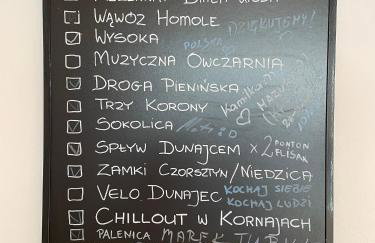 WĄWÓZ HOMOLE DZIĘKUJEMY!
WYSOKA POLSKA
MUZYCZNA OWCZARNIA
DROGA PIENIŃSKA
TRZY KORONY Kamilkami
SOKOLICA
SPŁYW DUNAJCEM x 2 PONTON FLISAK
ZAMKI CZORSZTYN/NIEDZICA
VELO DUNAJEC KOCHAJ SIEBIE
KOCHAJ LUDZI
CHILLOUT W KORNAJACH
PALENICA MAREK